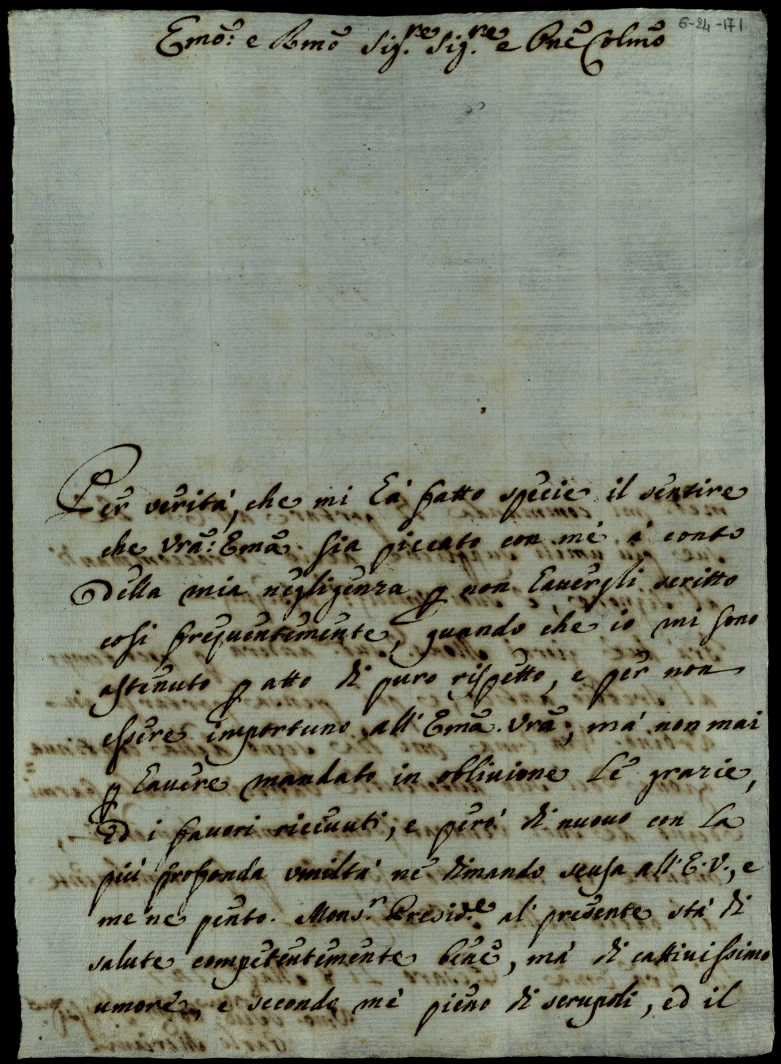 6-24-171
Emõ: e Rmõ Sig.re Sig.re e Pne Colmõ
Per verità, che mi hà fatto specie il sentire
che Vrã: Emã. sia piccato con mé à conto
della mia negligenza p non havergli scritto
cosi frequentemente, quando che io mi sono
astenuto p atto di puro rispetto, e per non
essere importuno all' Emã. Vrã; mà non mai
p havere mandato in oblivione le grazie,
ed i favori ricevuti, e però di nuovo con la
più profonda umiltà ne dimando scusa all' E. V., e
me ne pento. Mons.r Presid.e al presente stà di
salute competentemente bene, mà di cattivissimo
umore, e secondo mè pieno di scrupoli, ed il